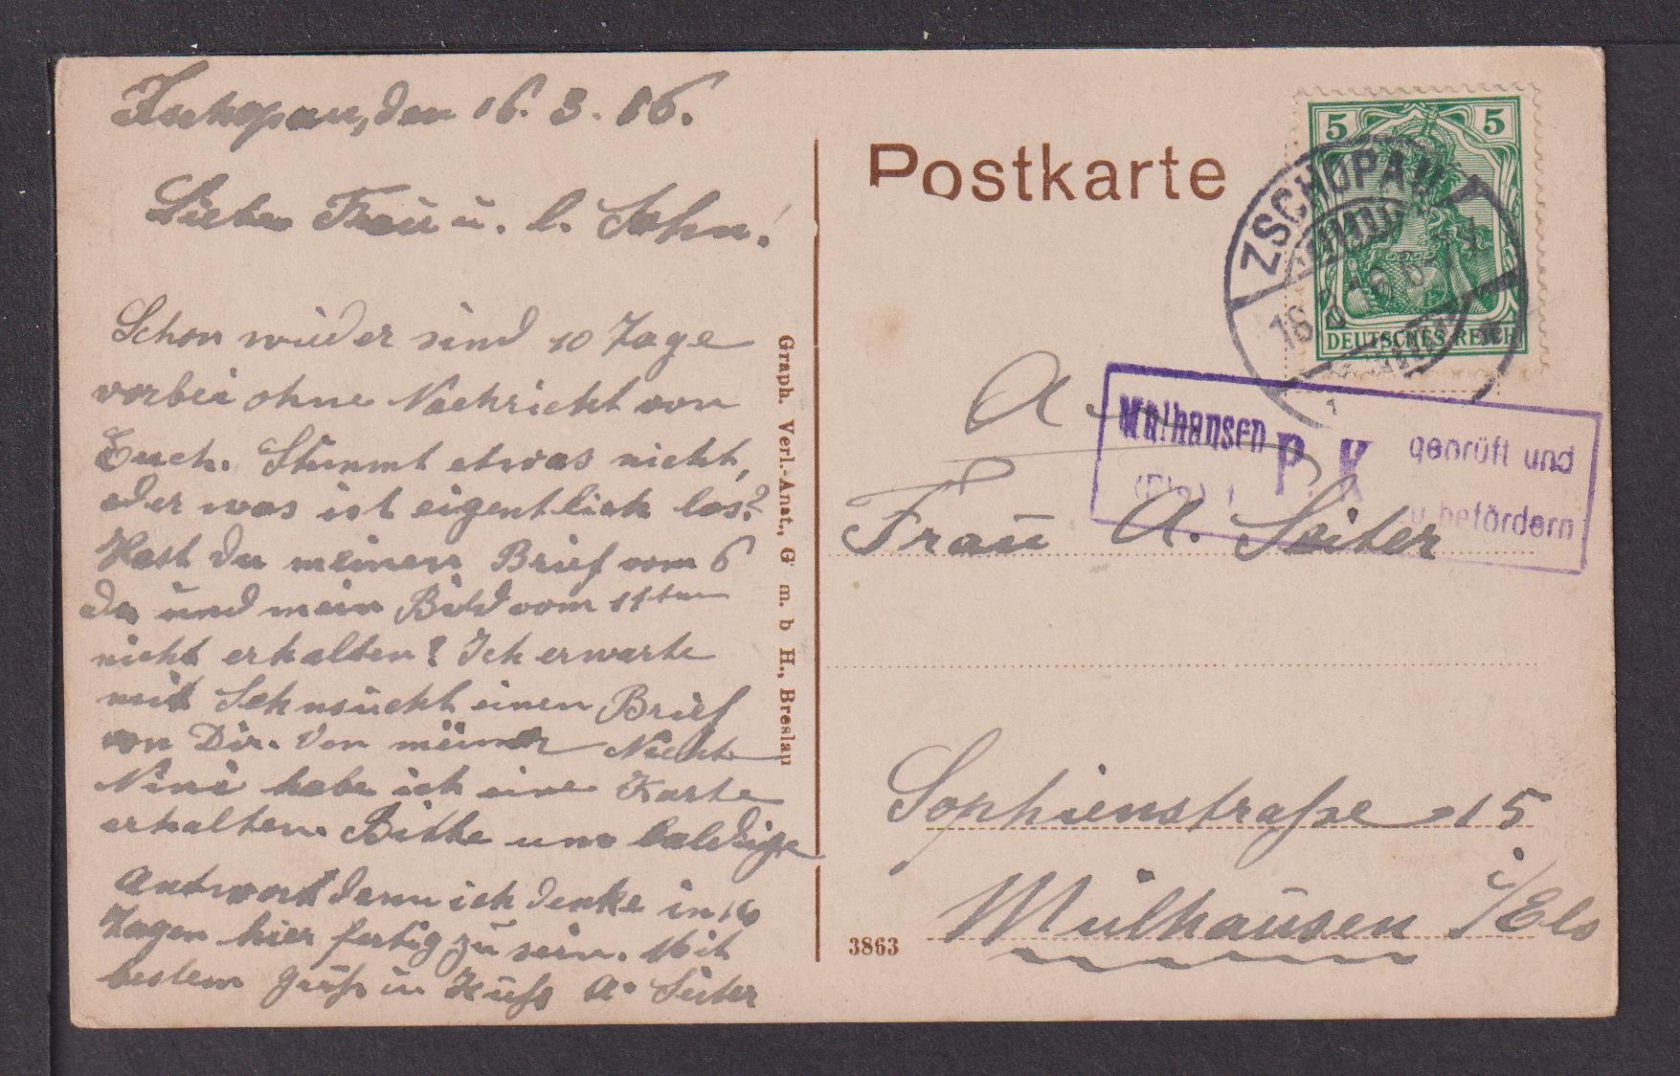 Zschopau, den 16. 3. 16.
Liebe Frau u. l. Sohn!
Schon wieder sind 10 Tage
vorbei ohne Nachricht von
Euch. Stimmt etwas nicht,
oder was ist eigentlich los?
Hast du meinen Brief vom 6
und mein Bild vom 11ten
nicht erhalten? Ich erwarte
mit Sehnsucht einen Brief
von Dir. Von meiner Nichte
Nini habe ich eine Karte
erhalten. Bitte um baldige
Antwort denn ich denke in
Tagen hier fertig zu sein. Mit
bestem Gruß u Kuß A. Seiter
Graph. Verl.-Anst., G. m. b H., Breslau
Postkarte
5 5
DEUTSCHES REICH
ZSCHOPAU
16. 3. 16
Mülhausen P. K. geprüft und
(Els) zu befördern
An
Frau A. Seiter
Sophienstraße 15
Mülhausen i/Els
3863